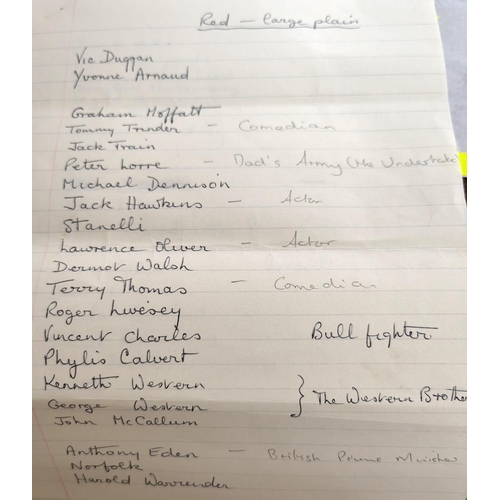 Red — large plain
Vic Duggan
Yvonne Arnaud
Graham Moffatt
Tommy Trinder — Comedian
Jack Train
Peter Lorre — Dad's Army (the Undertake
Michael Dennison
Jack Hawkins — Actor
Stanelli
Lawrence Oliver — Actor
Dermot Walsh
Terry Thomas — Comedian
Roger Livesey
Vincent Charles Bull fighter
Phylis Calvert
Kenneth Western } The Western Brothe
George Western
John McCallum
Anthony Eden — British Prime Minister
Norfolk
Harold Warrender